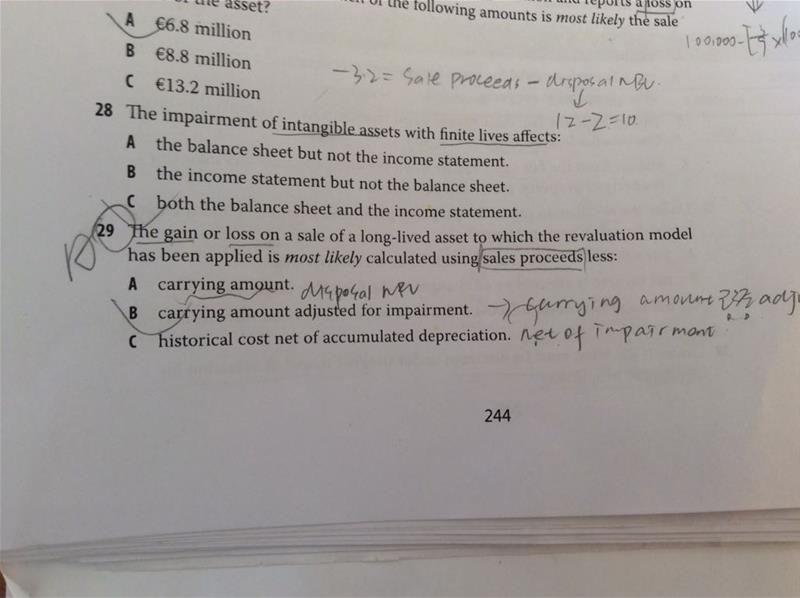 the asset?
of the following amounts is most likely the sale
and reports a loss on
A €6.8 million
B €8.8 million
C €13.2 million
-3.2 = Sale proceeds - disposal NBV.
12-2=10
28 The impairment of intangible assets with finite lives affects:
A the balance sheet but not the income statement.
B the income statement but not the balance sheet.
C both the balance sheet and the income statement.
29 The gain or loss on a sale of a long-lived asset to which the revaluation model
has been applied is most likely calculated using sales proceeds less:
A carrying amount. disposal NBV
B carrying amount adjusted for impairment. → Carrying amount
C historical cost net of accumulated depreciation. net of impairment
244